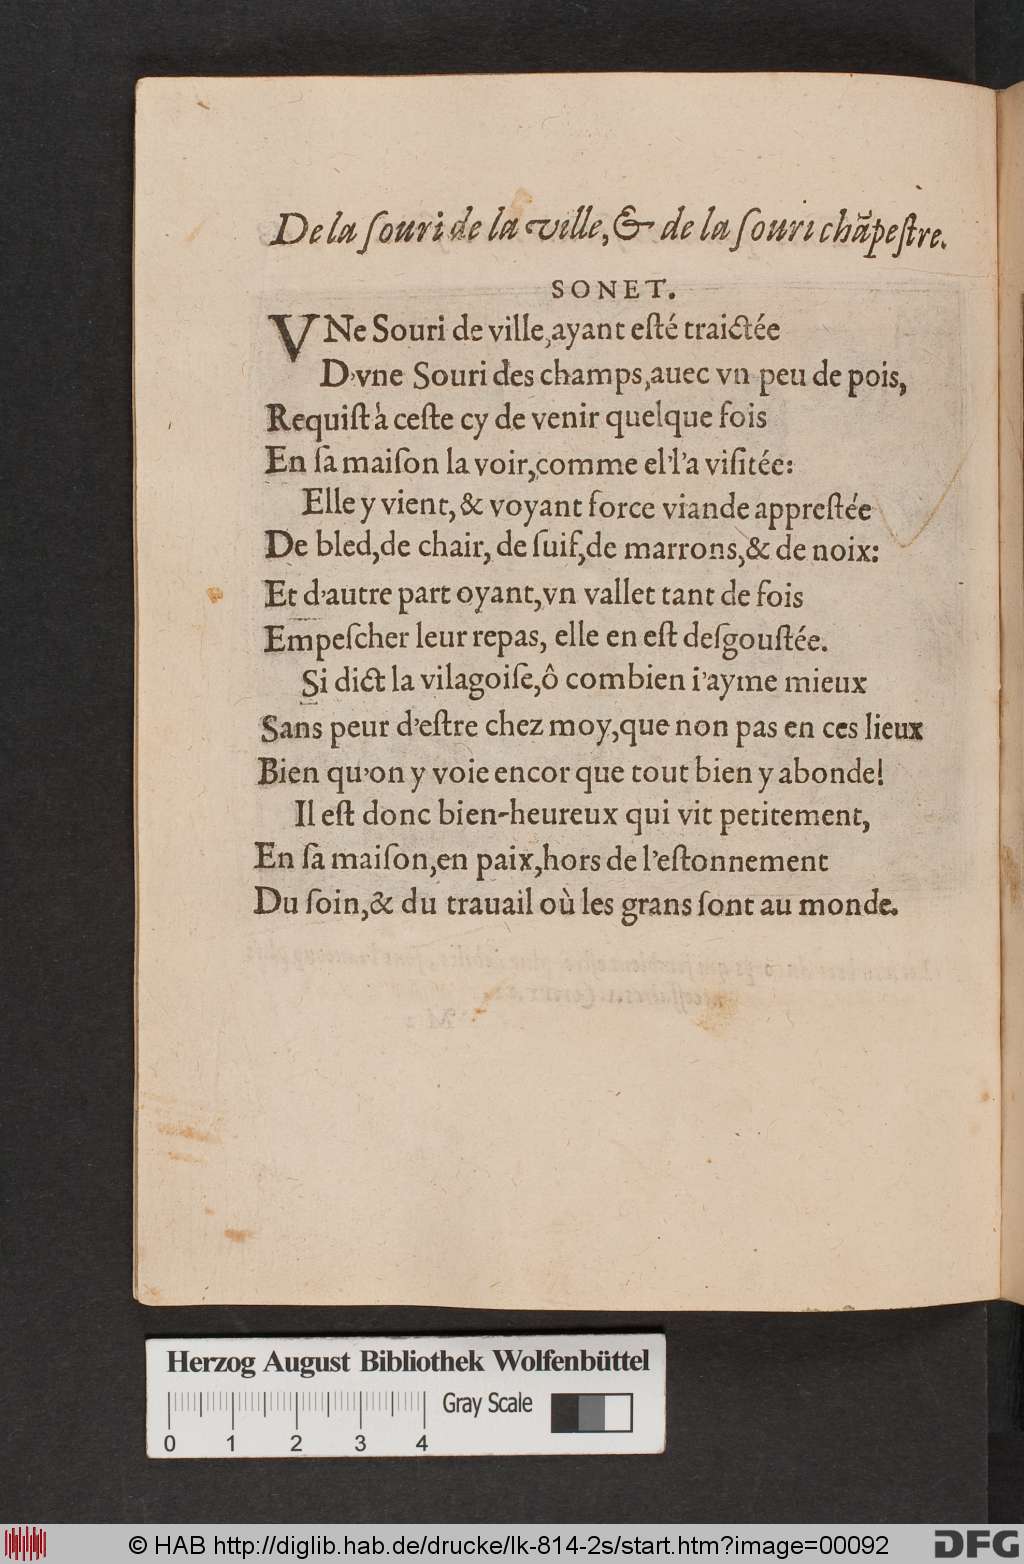 De la ſouri de la ville, & de la ſouri chãpeſtre.
SONET.
VNe Souri de ville,ayant eſté traictée
D'vne Souri des champs,auec vn peu de pois,
Requiſt à ceſte cy de venir quelque fois
En ſa maiſon la voir,comme el'l'a viſitée:
Elle y vient, & voyant force viande appreſtée
De bled,de chair, de ſuif,de marrons,& de noix:
Et d'autre part oyant,vn vallet tant de fois
Empeſcher leur repas, elle en eſt deſgouſtée.
Si dict la vilagoiſe,ô combien i'ayme mieux
Sans peur d'eſtre chez moy,que non pas en ces lieux
Bien qu'on y voie encor que tout bien y abonde!
Il eſt donc bien-heureux qui vit petitement,
En ſa maiſon,en paix,hors de l'eſtonnement
Du ſoin,& du trauail où les grans ſont au monde.
Herzog August Bibliothek Wolfenbüttel
Gray Scale
0 1 2 3 4
© HAB http://diglib.hab.de/drucke/lk-814-2s/start.htm?image=00092
DFG